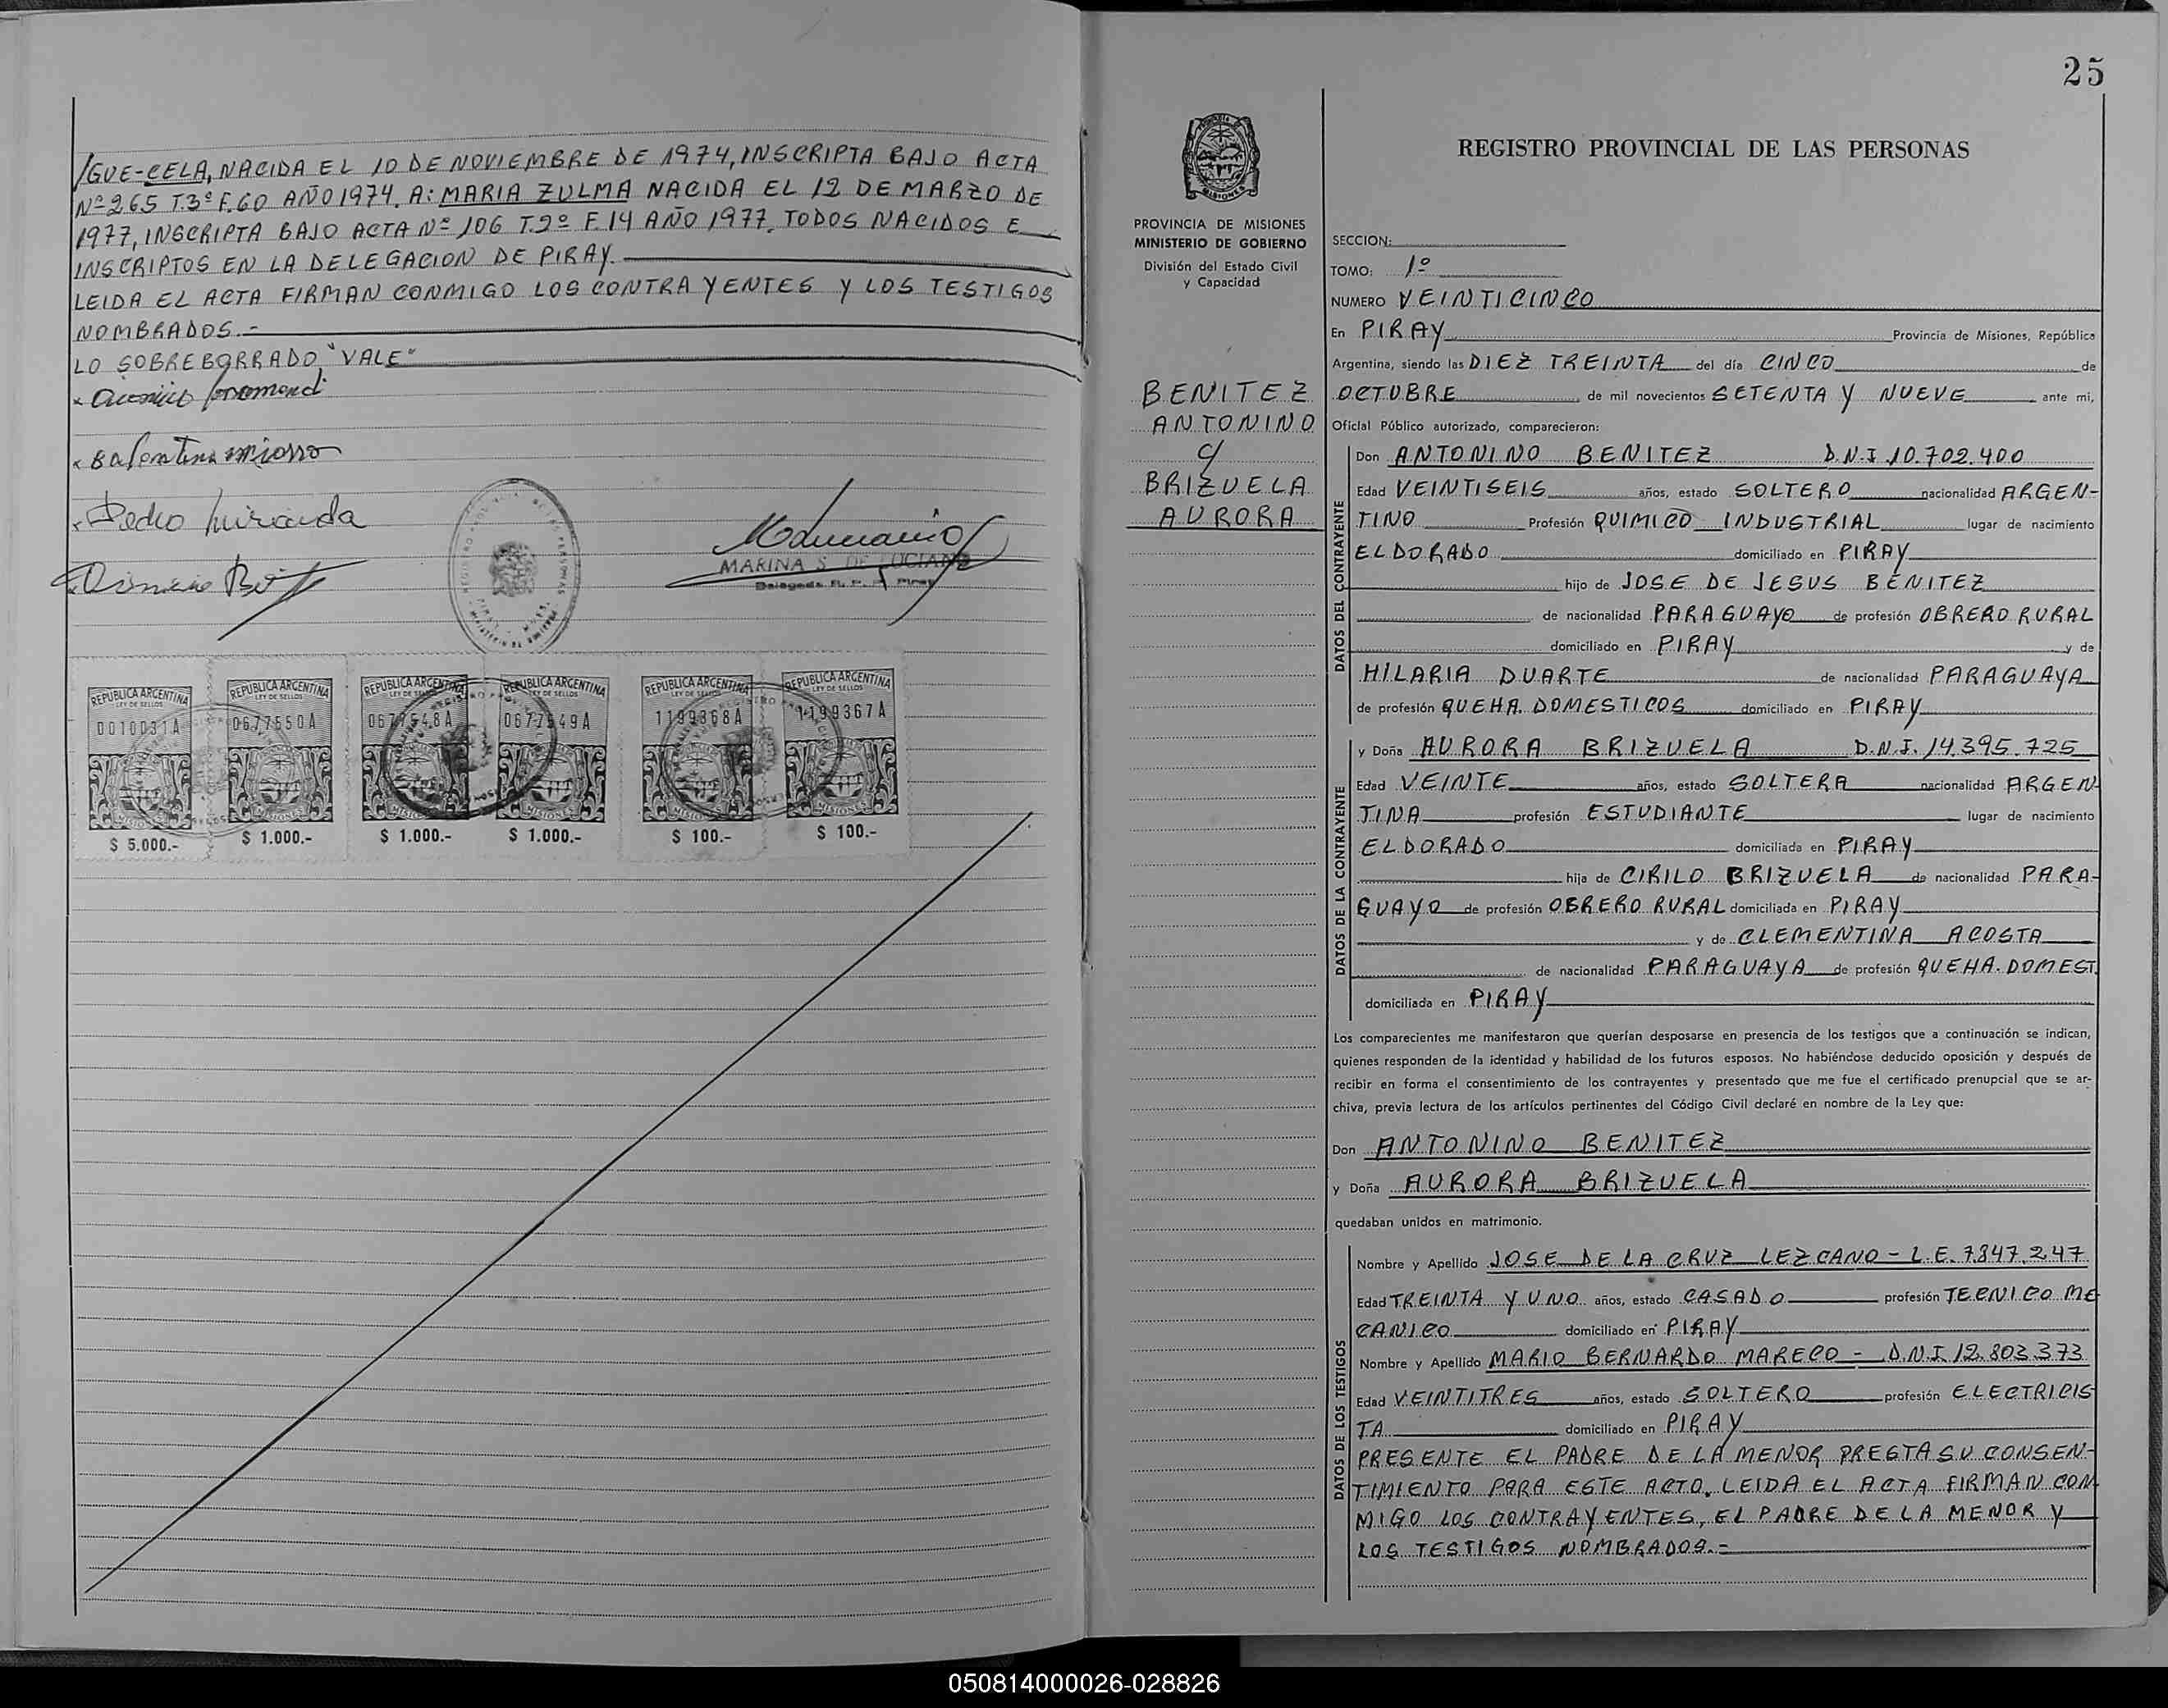 /GUE-CELA, NACIDA EL 10 DE NOVIEMBRE DE 1974, INSCRIPTA BAJO ACTA
Nº 265 T.3º F.60 AÑO 1974. A: MARIA ZULMA NACIDA EL 12 DE MARZO DE
1977, INSCRIPTA BAJO ACTA Nº 106 T.2º F.14 AÑO 1977. TODOS NACIDOS E
INSCRIPTOS EN LA DELEGACION DE PIRAY.
LEIDA EL ACTA FIRMAN CONMIGO LOS CONTRAYENTES Y LOS TESTIGOS
NOMBRADOS.-
LO SOBREBORRADO "VALE"
Pedro Miranda
MARINA S. DE LUCIANO
REPUBLICA ARGENTINA
LEY DE SELLOS
0010031A
MISIONES
$ 5.000.-
REPUBLICA ARGENTINA
LEY DE SELLOS
0677550A
MISIONES
$ 1.000.-
REPUBLICA ARGENTINA
LEY DE SELLOS
0677548A
$ 1.000.-
REPUBLICA ARGENTINA
LEY DE SELLOS
0677549A
MISIONES
$ 1.000.-
REPUBLICA ARGENTINA
LEY DE SELLOS
1199368A
MISIONES
$ 100.-
REPUBLICA ARGENTINA
LEY DE SELLOS
1199367A
MISIONES
$ 100.-
25
PROVINCIA DE MISIONES
MINISTERIO DE GOBIERNO
División del Estado Civil
y Capacidad
BENITEZ
ANTONINO
c/
BRIZUELA
AURORA
REGISTRO PROVINCIAL DE LAS PERSONAS
SECCION:
TOMO: 1º
NUMERO VEINTICINCO
En PIRAY Provincia de Misiones, República
Argentina, siendo las DIEZ TREINTA del día CINCO de
OCTUBRE de mil novecientos SETENTA Y NUEVE ante mi,
Oficial Público autorizado, comparecieron:
DATOS DEL CONTRAYENTE
Don ANTONINO BENITEZ D.N.I 10.702.400
Edad VEINTISEIS años, estado SOLTERO nacionalidad ARGEN-
TINO Profesión QUIMICO INDUSTRIAL lugar de nacimiento
ELDORADO domiciliado en PIRAY
hijo de JOSE DE JESUS BENITEZ
de nacionalidad PARAGUAYO de profesión OBRERO RURAL
domiciliado en PIRAY y de
HILARIA DUARTE de nacionalidad PARAGUAYA
de profesión QUEHA. DOMESTICOS domiciliado en PIRAY
DATOS DE LA CONTRAYENTE
y Doña AURORA BRIZUELA D.N.I. 14.395.725
Edad VEINTE años, estado SOLTERA nacionalidad ARGEN-
TINA profesión ESTUDIANTE lugar de nacimiento
ELDORADO domiciliada en PIRAY
hija de CIRILO BRIZUELA de nacionalidad PARA-
GUAYO de profesión OBRERO RURAL domiciliada en PIRAY
y de CLEMENTINA ACOSTA
de nacionalidad PARAGUAYA de profesión QUEHA. DOMEST.
domiciliada en PIRAY
Los comparecientes me manifestaron que querían desposarse en presencia de los testigos que a continuación se indican,
quienes responden de la identidad y habilidad de los futuros esposos. No habiéndose deducido oposición y después de
recibir en forma el consentimiento de los contrayentes y presentado que me fue el certificado prenupcial que se ar-
chiva, previa lectura de los artículos pertinentes del Código Civil declaré en nombre de la Ley que:
Don ANTONINO BENITEZ
y Doña AURORA BRIZUELA
quedaban unidos en matrimonio.
DATOS DE LOS TESTIGOS
Nombre y Apellido JOSE DE LA CRUZ LEZCANO - L.E. 7.847.247
Edad TREINTA Y UNO años, estado CASADO profesión TECNICO ME
CANICO domiciliado en PIRAY
Nombre y Apellido MARIO BERNARDO MARECO - D.N.I. 12.803.373
Edad VEINTITRES años, estado SOLTERO profesión ELECTRICIS-
TA domiciliado en PIRAY
PRESENTE EL PADRE DE LA MENOR PRESTA SU CONSEN-
TIMIENTO PARA ESTE ACTO. LEIDA EL ACTA FIRMAN CON
MIGO LOS CONTRAYENTES, EL PADRE DE LA MENOR Y
LOS TESTIGOS NOMBRADOS.-
050814000026-028826